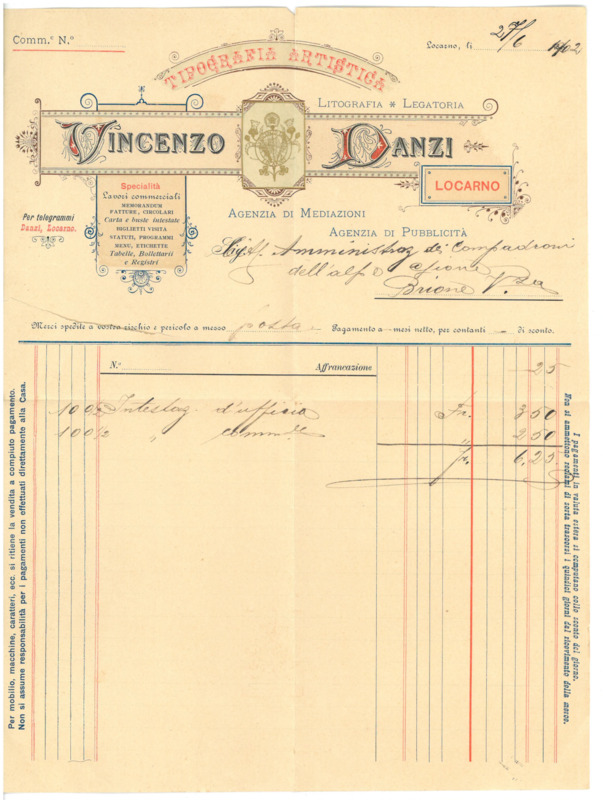 Comm.ᵉ N.º
Locarno, li 27/6 1902
TIPOGRAFIA ARTISTICA
LITOGRAFIA * LEGATORIA
VINCENZO DANZI
LOCARNO
Specialità
Lavori commerciali
MEMORANDUM
FATTURE, CIRCOLARI
Carta e buste intestate
BIGLIETTI VISITA
STATUTI, PROGRAMMI
MENU, ETICHETTE
Tabelle, Bollettarii
e Registri
Per telegrammi
Danzi, Locarno.
AGENZIA DI MEDIAZIONI
AGENZIA DI PUBBLICITÀ
Amministraz dei Compadroni
dell'alpe
Brione
Merci spedite a vostro rischio e pericolo a mezzo posta Pagamento a mesi netto, per contanti di sconto.
N.º Affrancazione 25
100 Intestaz. d'ufficio Fr. 3 50
100 " " 2 50
fr. 6,25
Per mobilio, macchine, caratteri, ecc. si ritiene la vendita a compiuto pagamento.
Non si assume responsabilità per i pagamenti non effettuati direttamente alla Casa.
I pagamenti in valuta estera si computano collo sconto del giorno.
Non si ammettono reclami di sorta trascorsi i quindici giorni dal ricevimento della merce.